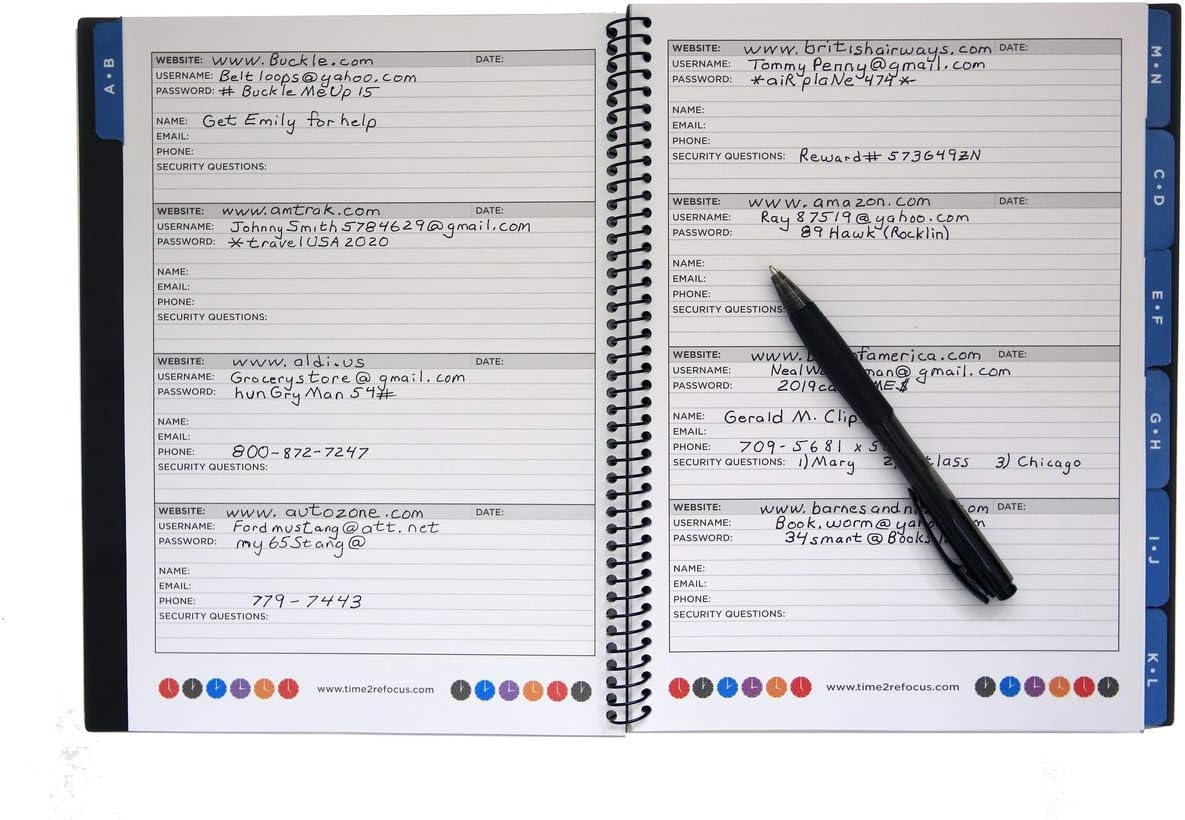 A•B
WEBSITE: www.Buckle.com DATE:
USERNAME: Belt loops@yahoo.com
PASSWORD: # BuckleMeUp 15
NAME: Get Emily for help
EMAIL:
PHONE:
SECURITY QUESTIONS:
WEBSITE: www.amtrak.com DATE:
USERNAME: JohnnySmith5784629@gmail.com
PASSWORD: *travelUSA2020
NAME:
EMAIL:
PHONE:
SECURITY QUESTIONS:
WEBSITE: www.aldi.us DATE:
USERNAME: Grocerystore@gmail.com
PASSWORD: hunGryMan54#
NAME:
EMAIL:
PHONE: 800-872-7247
SECURITY QUESTIONS:
WEBSITE: www.autozone.com DATE:
USERNAME: Fordmustang@att.net
PASSWORD: my65Stang@
NAME:
EMAIL:
PHONE: 779-7443
SECURITY QUESTIONS:
www.time2refocus.com
WEBSITE: www.britishairways.com DATE:
USERNAME: TommyPenny@gmail.com
PASSWORD: *aiRplaNe474*
NAME:
EMAIL:
PHONE:
SECURITY QUESTIONS: Reward# 573649ZN
WEBSITE: www.amazon.com DATE:
USERNAME: Ray87519@yahoo.com
PASSWORD: 89 Hawk (Rocklin)
NAME:
EMAIL:
PHONE:
SECURITY QUESTIONS:
WEBSITE: DATE:
USERNAME:
PASSWORD:
NAME: Gerald M. Clip
EMAIL:
PHONE: 709-5681 x
SECURITY QUESTIONS: 1) Mary 3) Chicago
WEBSITE: DATE:
USERNAME:
PASSWORD:
NAME:
EMAIL:
PHONE:
SECURITY QUESTIONS:
www.time2refocus.com
M•N
C•D
E•F
G•H
I•J
K•L